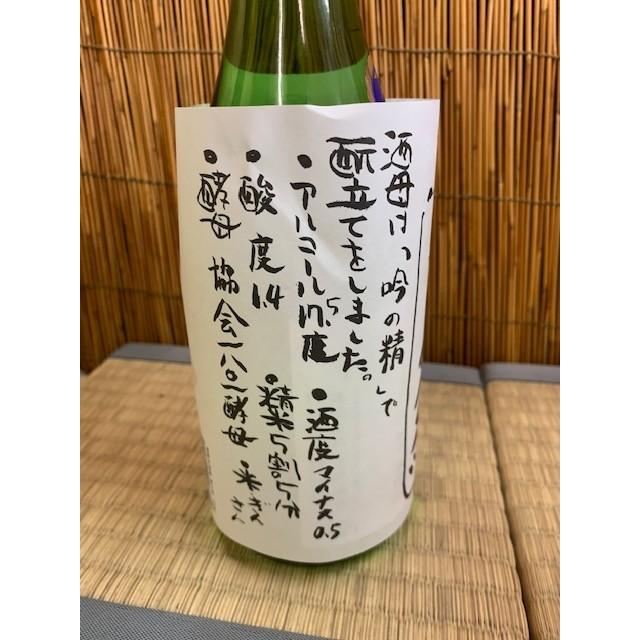 酒母は、「吟の精」で
酛立てをしました。
•アルコール17.5度
•酒度マイナス0.5
•酸度1.4
•精米5割5分
•酵母 協会一八〇一酵母
米ぎんさん